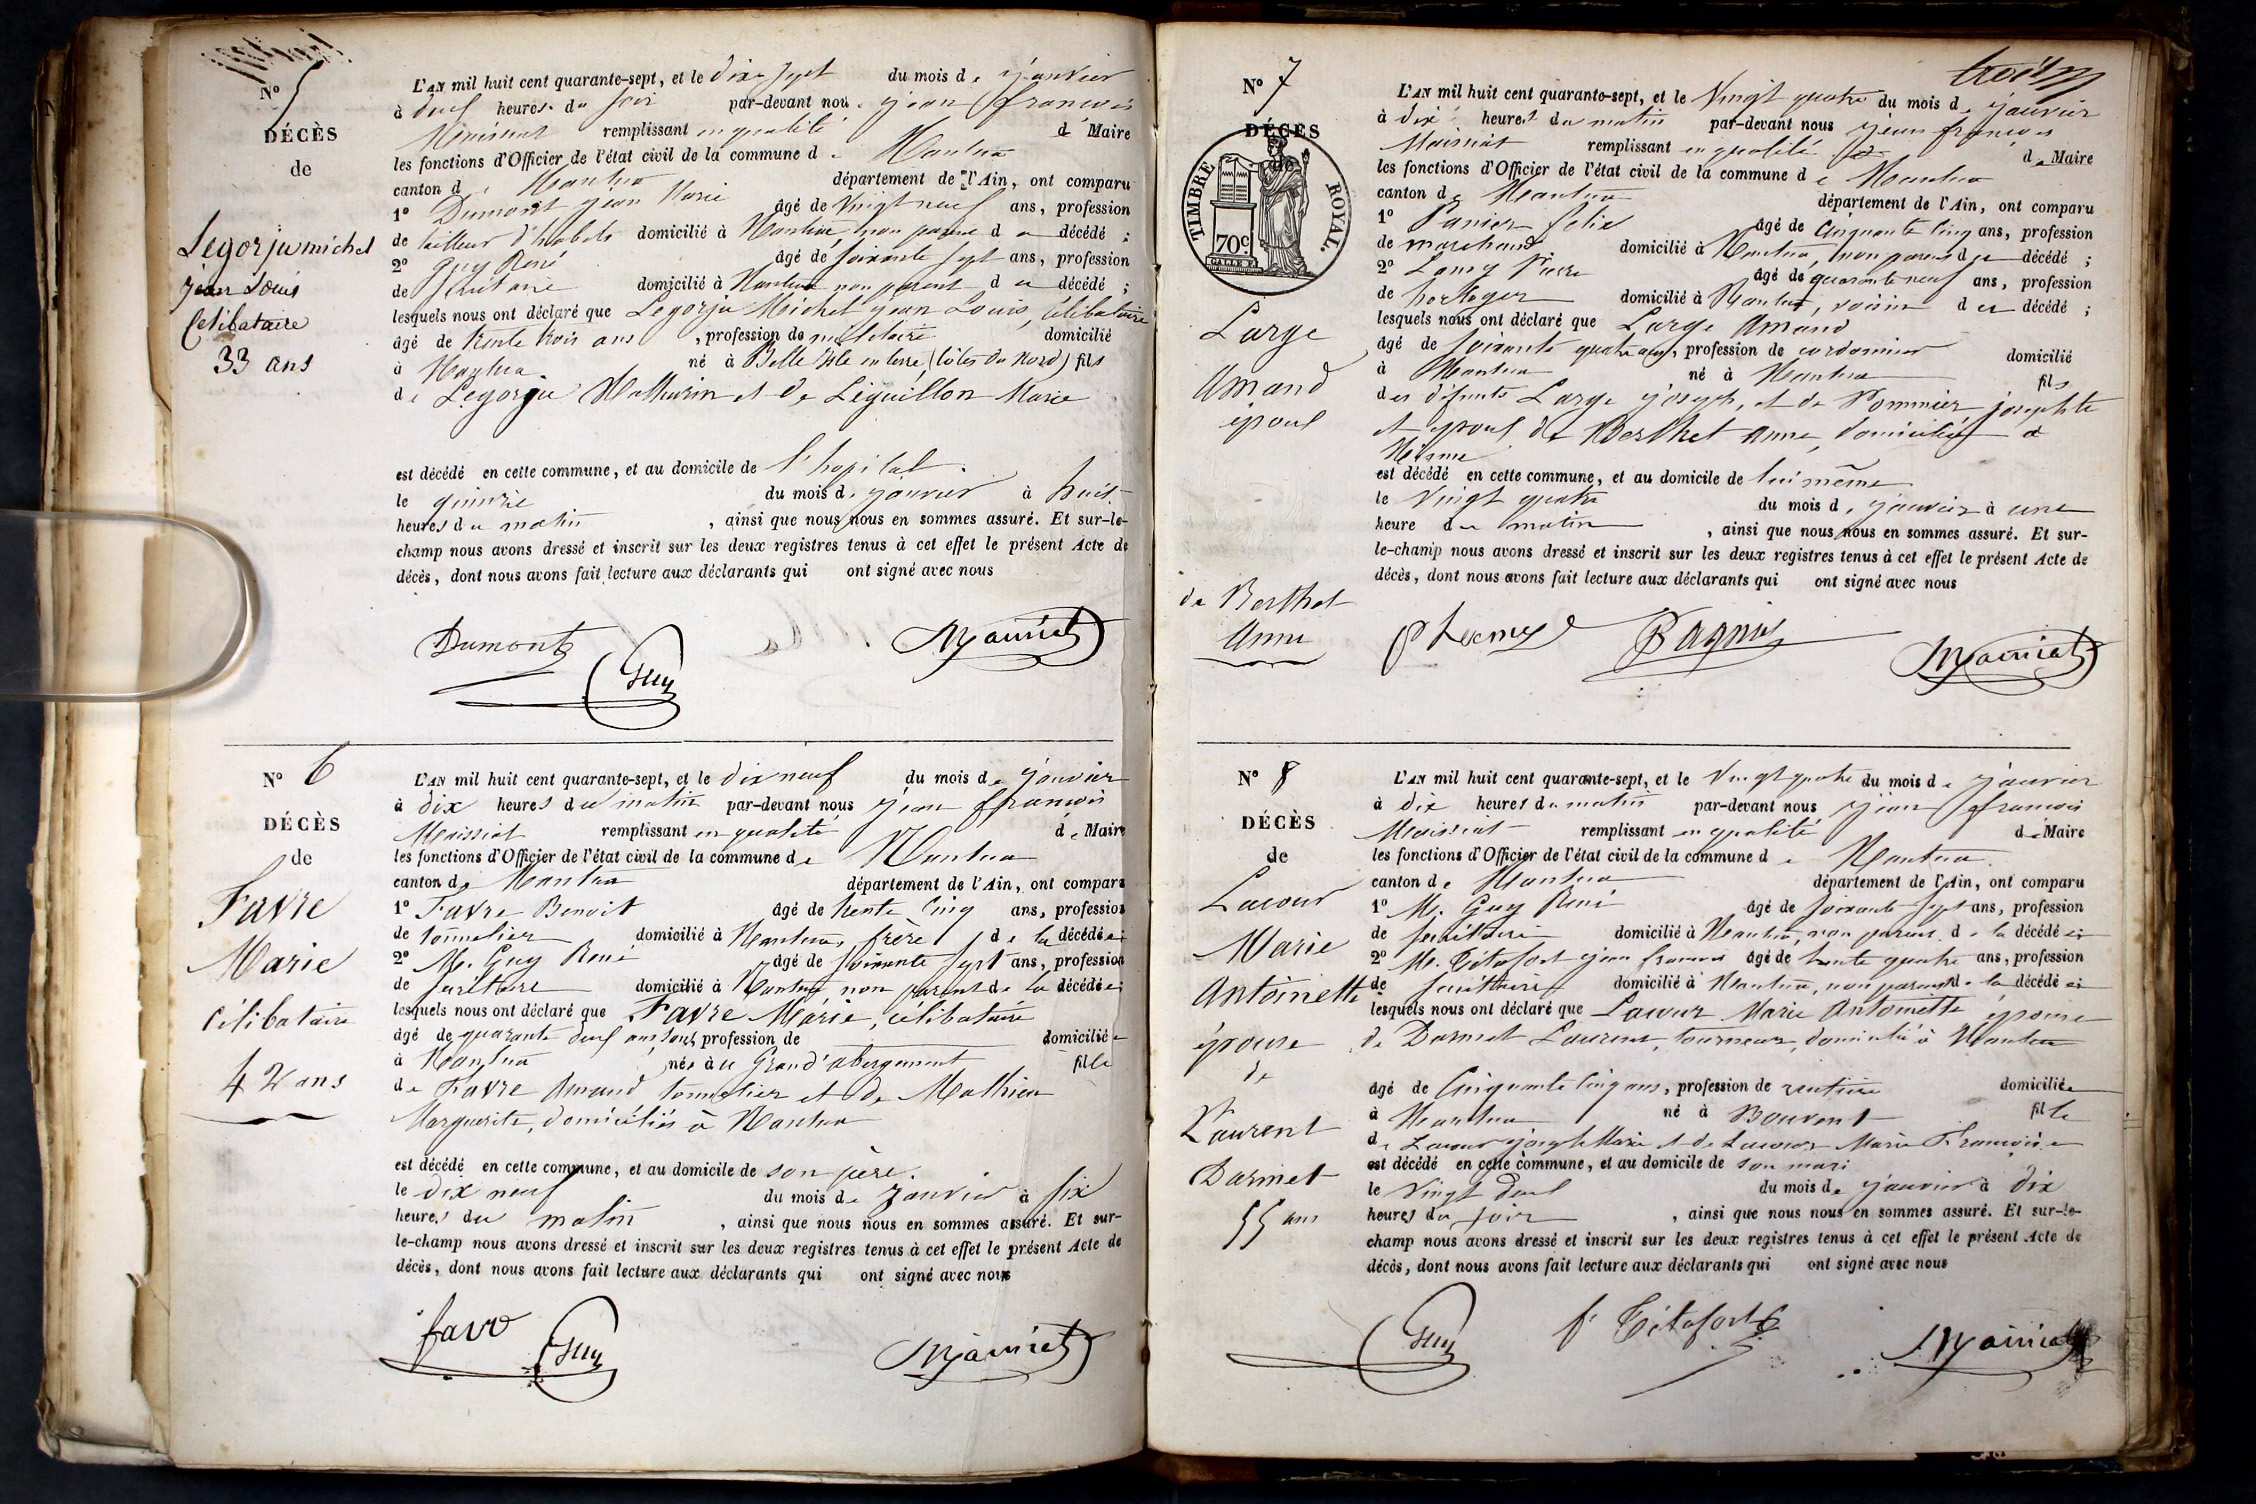 N° 5
DÉCÈS
de
Legorju michel
jean Louis
Célibataire
33 ans
L'AN mil huit cent quarante-sept, et le dix sept du mois de janvier
à deux heures du soir par-devant nous jean françois
Maissiat remplissant en qualité de Maire
les fonctions d'Officier de l'état civil de la commune de Nantua
canton de Nantua département de l'Ain, ont comparu
1° Dumont jean Marie âgé de vingt neuf ans, profession
de tailleur d'habits domicilié à Nantua non parent du décédé ;
2° Guy René âgé de soixante sept ans, profession
de secrétaire domicilié à Nantua non parent du décédé ;
lesquels nous ont déclaré que Legorju Michel jean Louis, célibataire
âgé de trente trois ans, profession de militaire domicilié
à Nantua né à Belle Isle en terre, (Côtes du Nord) fils
de Legorju Mathurin et de Liguillon Marie
est décédé en cette commune, et au domicile de l'hopital
le quinze du mois de janvier à huit
heures du matin, ainsi que nous nous en sommes assuré. Et sur-le-
champ nous avons dressé et inscrit sur les deux registres tenus à cet effet le présent Acte de
décès, dont nous avons fait lecture aux déclarants qui ont signé avec nous
Dumont Guy Maissiat
N° 6
DÉCÈS
de
Favre
Marie
Célibataire
42 ans
L'AN mil huit cent quarante-sept, et le dix neuf du mois de janvier
à dix heures du matin par-devant nous jean françois
Maissiat remplissant en qualité de Maire
les fonctions d'Officier de l'état civil de la commune de Nantua
canton de Nantua département de l'Ain, ont comparu
1° Favre Benoit âgé de trente cinq ans, profession
de tonnelier domicilié à Nantua, frère de la décédée ;
2° M. Guy René âgé de soixante sept ans, profession
de secrétaire domicilié à Nantua non parent de la décédée ;
lesquels nous ont déclaré que Favre Marie, célibataire
âgé de quarante deux ans sans profession de domiciliée
à Nantua née au Grand abergement fille
de Favre Amand tonnelier et de Mathieu
Marguerite, domiciliés à Nantua
est décédé en cette commune, et au domicile de son père.
le dix neuf du mois de janvier à six
heures du matin, ainsi que nous nous en sommes assuré. Et sur-
le-champ nous avons dressé et inscrit sur les deux registres tenus à cet effet le présent Acte de
décès, dont nous avons fait lecture aux déclarants qui ont signé avec nous
favre Guy Maissiat
trois
N° 7
DÉCÈS
de
TIMBRE ROYAL.
70c
Large
Amand
époux
de Berthet
Anne
L'AN mil huit cent quarante-sept, et le Vingt quatre du mois de janvier
à dix heures du matin par-devant nous jean françois
Maissiat remplissant en qualité de Maire
les fonctions d'Officier de l'état civil de la commune de Nantua
canton de Nantua département de l'Ain, ont comparu
1° Félix âgé de Cinquante Cinq ans, profession
de marchand domicilié à Nantua, non parent du décédé ;
2° Lamy Pierre âgé de quarante neuf ans, profession
de horloger domicilié à Nantua, voisin du décédé ;
lesquels nous ont déclaré que Large Amand
âgé de soixante quatre ans, profession de cordonnier domicilié
à Nantua né à Nantua fils
des défunts Large joseph, et de Pommier josephte
et époux de Berthet Anne, domiciliée à
Nantua
est décédé en cette commune, et au domicile de lui même
le Vingt quatre du mois de janvier à une
heure du matin, ainsi que nous nous en sommes assuré. Et sur-
le-champ nous avons dressé et inscrit sur les deux registres tenus à cet effet le présent Acte de
décès, dont nous avons fait lecture aux déclarants qui ont signé avec nous
P Lamy Maissiat
N° 8
DÉCÈS
de
Lacour
Marie
Antoinette
épouse
de
Laurent
Darmet
55 ans
L'AN mil huit cent quarante-sept, et le Vingt quatre du mois de janvier
à dix heures du matin par-devant nous jean françois
Maissiat remplissant en qualité de Maire
les fonctions d'Officier de l'état civil de la commune de Nantua
canton de Nantua département de l'Ain, ont comparu
1° M. Guy René âgé de soixante sept ans, profession
de secrétaire domicilié à Nantua, non parent de la décédée ;
2° M. Tétafort jean françois âgé de trente quatre ans, profession
de secrétaire domicilié à Nantua, non parent de la décédée ;
lesquels nous ont déclaré que Lacour Marie Antoinette épouse
de Darmet Laurent, tourneur, domicilié à Nantua
âgé de Cinquante Cinq ans, profession de rentière domiciliée
à Nantua né à Bouvent fille
de Lacour joseph Marie et de Lacour Marie Françoise
est décédé en cette commune, et au domicile de son mari
le Vingt deux du mois de janvier à dix
heures du soir, ainsi que nous nous en sommes assuré. Et sur-le-
champ nous avons dressé et inscrit sur les deux registres tenus à cet effet le présent Acte de
décès, dont nous avons fait lecture aux déclarants qui ont signé avec nous
Guy f Tétafort Maissiat